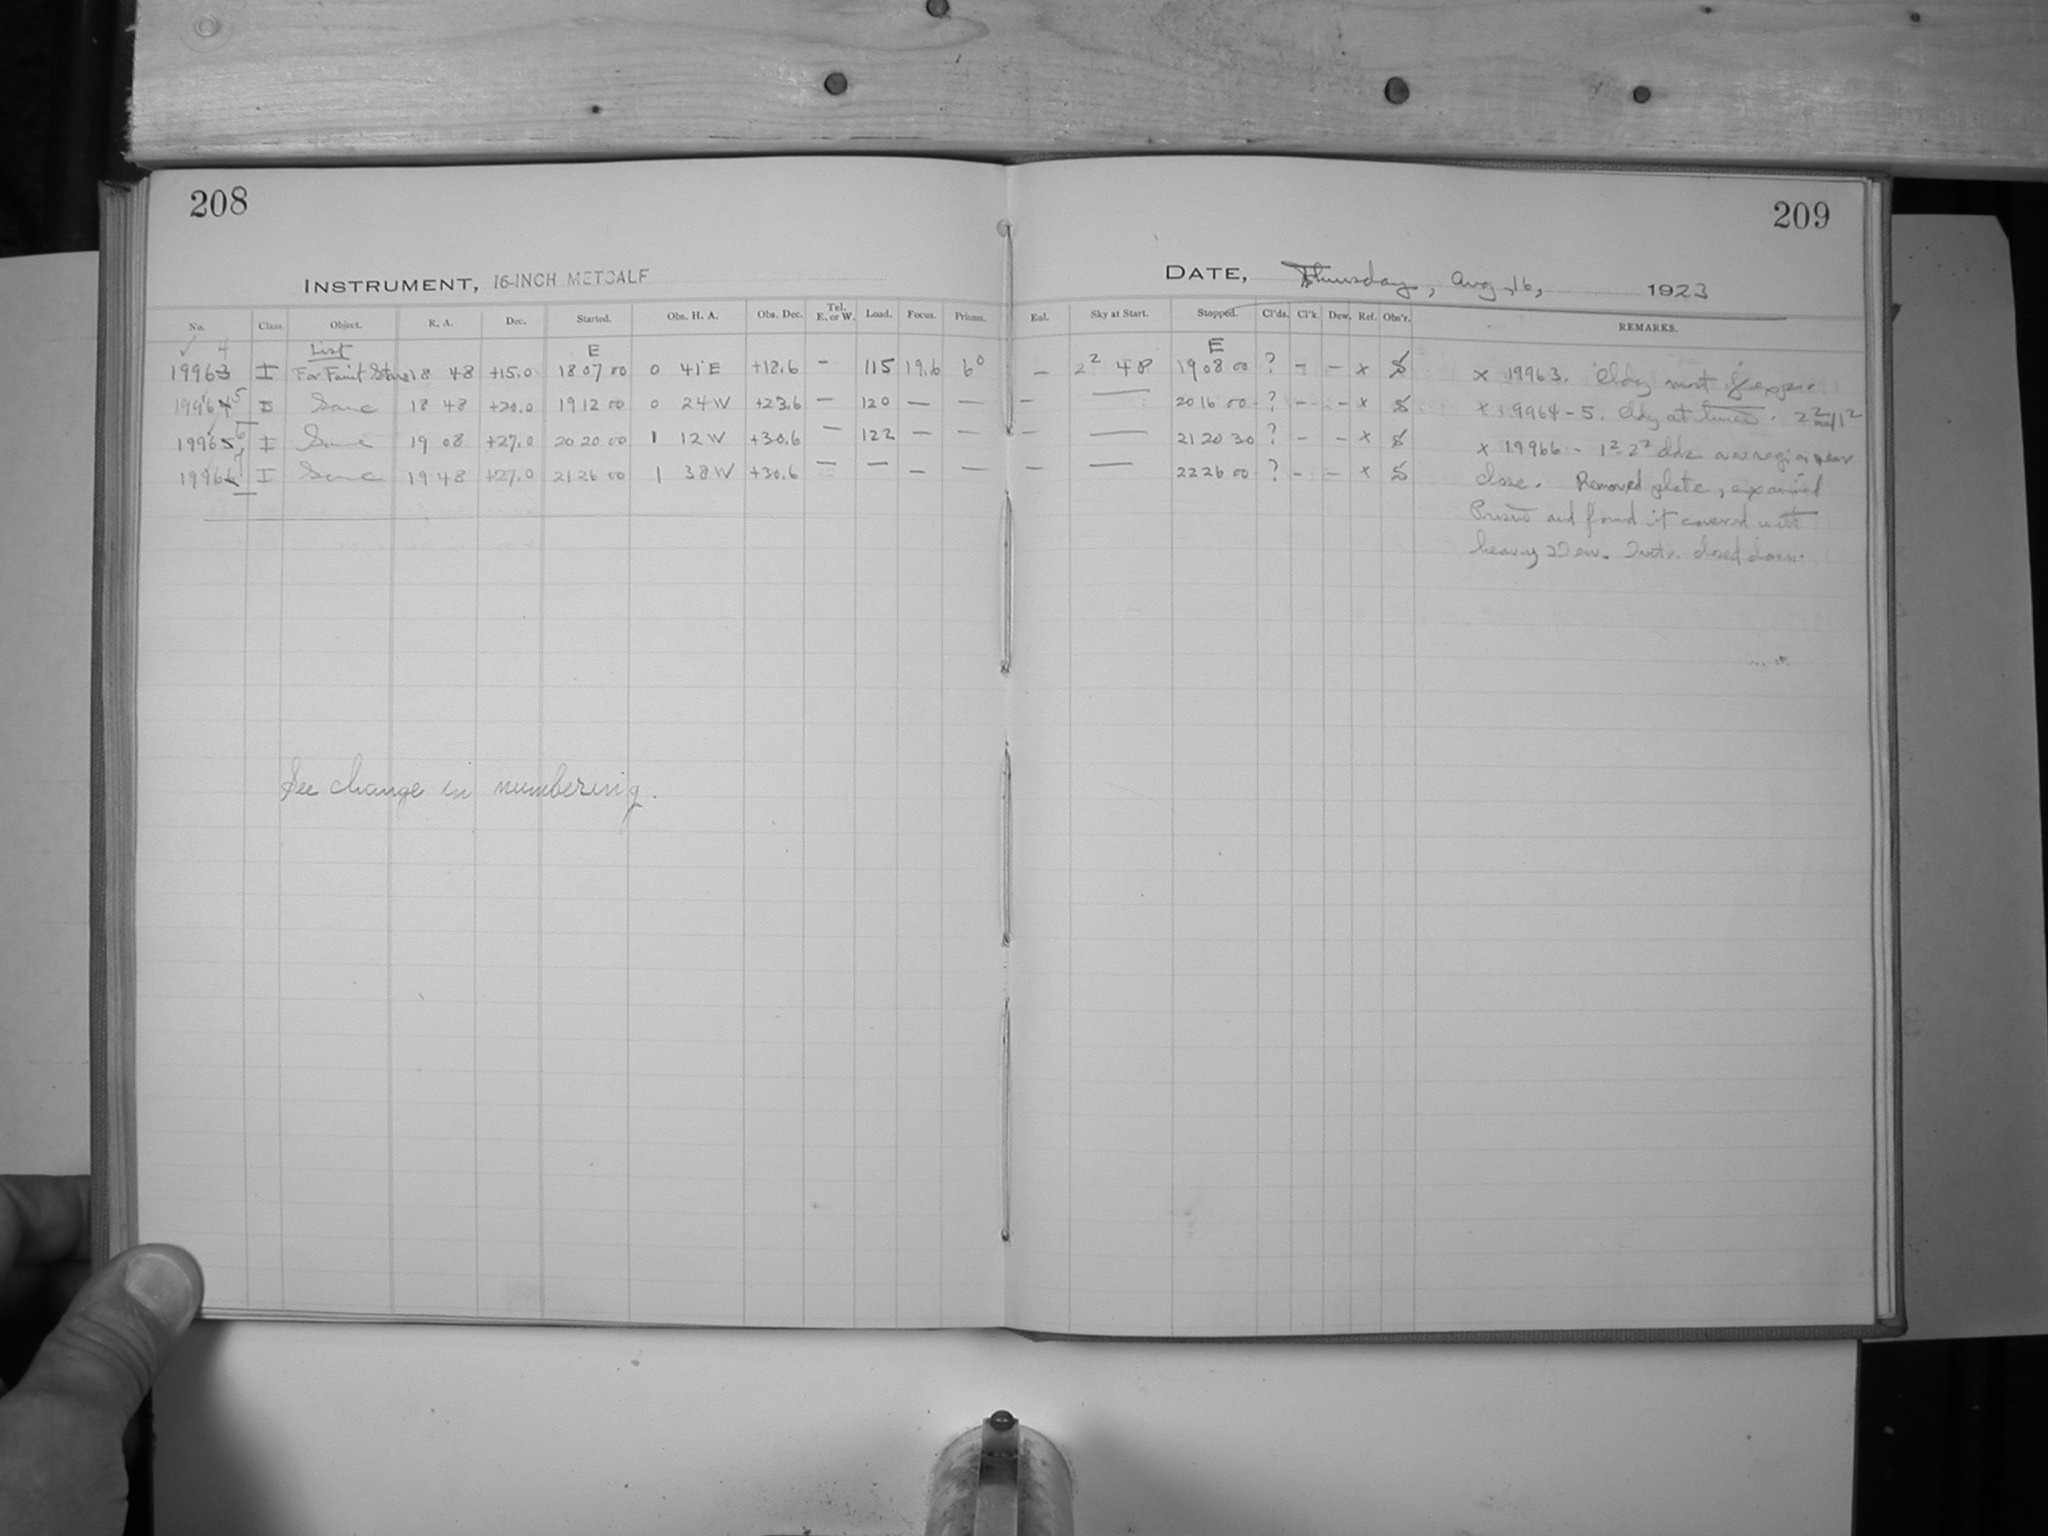 208
INSTRUMENT, 16-INCH METCALF
No. Class. Object. R. A. Dec. Started. Obs. H. A. Obs. Dec. Tel. E. or W. Load. Focus. Prisms.
✓ 4 List E
19963 I For Faint Stars 18 48 +15.0 18 07 00 0 41 E +18.6 — 115 19.6 6°
19964 5 I Same 18 48 +20.0 19 12 00 0 24 W +23.6 — 120 — —
19965 6 I Same 19 08 +27.0 20 20 00 1 12 W +30.6 — 122 — —
19966 7 I Same 19 48 +27.0 21 26 00 1 38 W +30.6 — — — —
See change in numbering.
209
DATE, Thursday, Aug. 16, 1923
Eol. Sky at Start. Stopped. Cl'ds. Cl'k. Dew. Ref. Obs'r. REMARKS.
E
— 2² 48 19 08 00 ? — — x S
— — 20 16 00 ? — — x S
— — 21 20 30 ? — — x S
— — 22 26 00 ? — — x S
x 19963. Cldy most of expo.
x 19964-5. Cldy at times.
x 19966 - 1² 2² clds over region near
close. Removed plate, examined
Prism and found it covered with
heavy Dew. Instr. closed down.